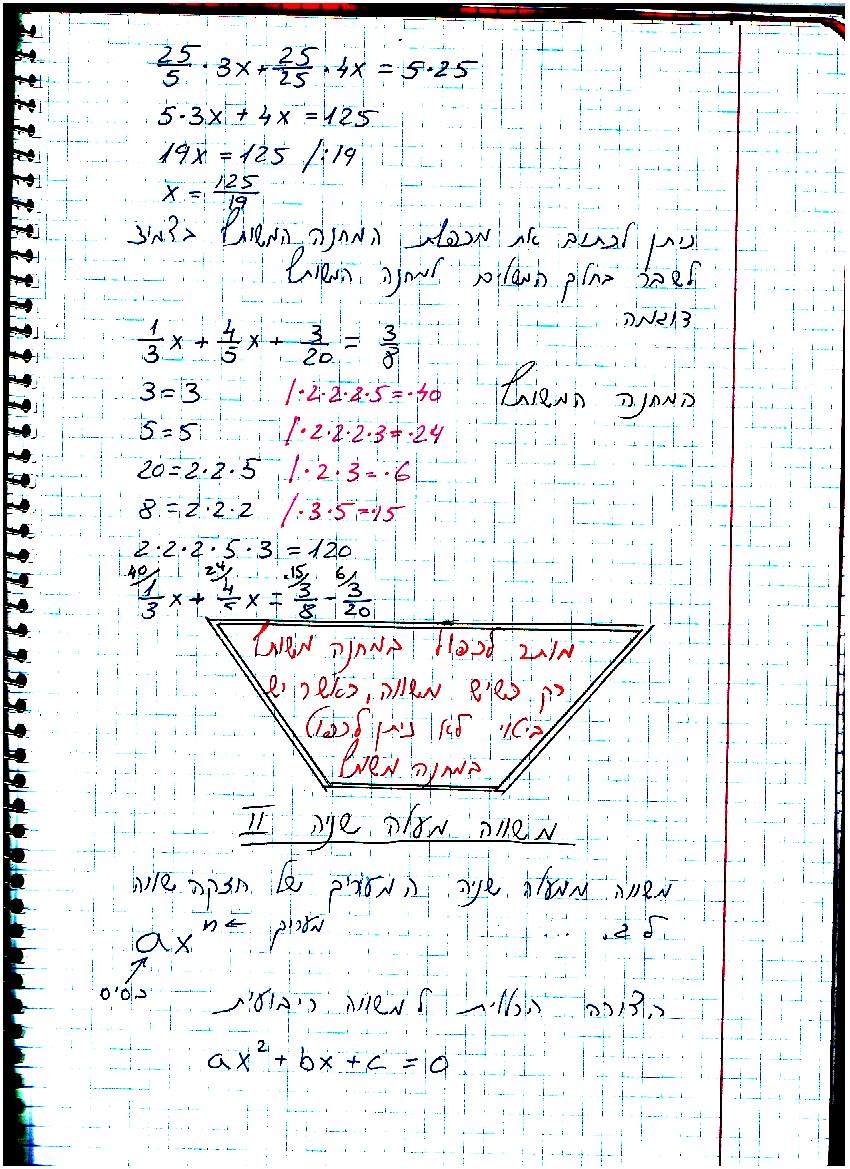 25/5 · 3x + 25/25 · 4x = 5·25
5·3x + 4x = 125
19x = 125 /:19
x = 125/19
ניתן לכתוב את מכפלת המחנה המשותף בצמוד
לשבר בחלק המשלים למחנה המשותף
דוגמה
1/3 x + 4/5 x + 3/20 = 3/8
3=3 /·2·2·2·5=·40 המחנה המשותף
5=5 /·2·2·2·3=·24
20=2·2·5 /·2·3=·6
8=2·2·2 /·3·5=·15
2·2·2·5·3=120
40/ 24/ ·15/ 6/
1/3 x + 4/5 x = 3/8 - 3/20
מותר לכפול במחנה משותף
רק כשיש משווה, כאשר יש
ביטוי לא ניתן לכפול
במחנה משותף
משווה מעלה שניה II
משווה ממעלה שניה המעריך של חזקה שווה
ל 2. ...
ax n ← מעריך
בסיס
הצורה הכללית למשווה ריבועית
ax² + bx + c = 0